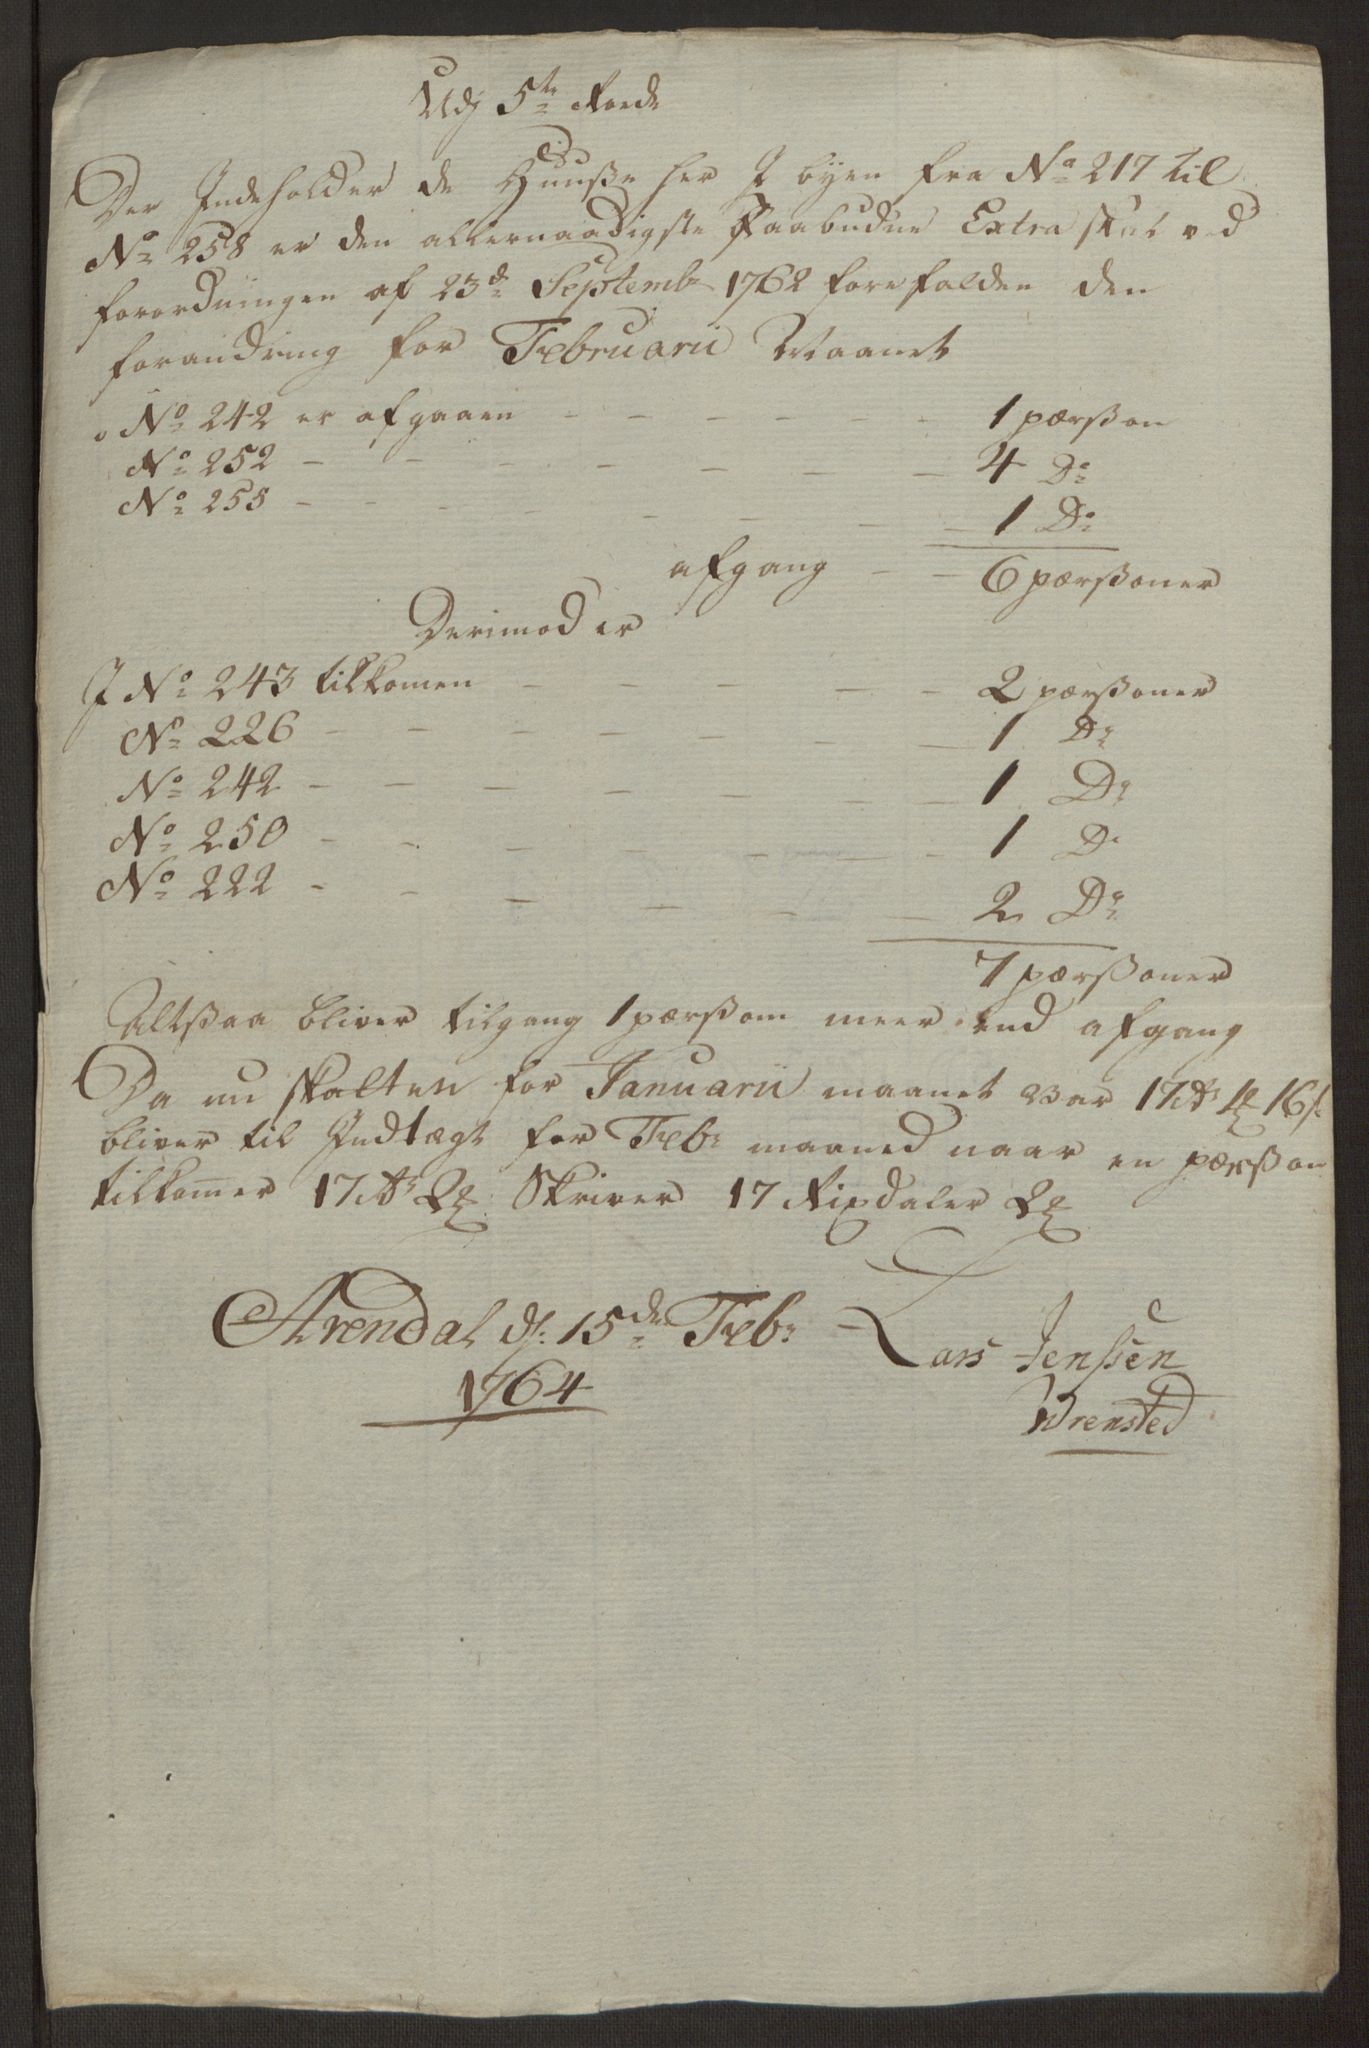 Udj 5te Roede
Der Indeholder de Huusse her I byen fra No 217 til
No 258 er den allernaadigste Paabudne Extra skat ved
forordningen af 23de Septembr 1762 forefalden den
forandring for Februarii Maanet
No 242 er afgaaen — — — — — 1 pærsson
No 252 — — — — — — — 4 Do
No 255 — — — — — — — 1 Do
afgang — — 6 pærssoner
Derimod er
I No 243 tilkomen — — — — — 2 pærssoner
No 226 — — — — — — — 1 Do
No 242 — — — — — — — 1 Do
No 250 — — — — — — — 1 Do
No 222 — — — — — — 2 Do
7 pærssoner
Altssaa bliver tilgang 1 pærsson meer end afgang
Da nu skatten for Januarii maanet var 17 rdr 1 mk 16 s
bliver til Indtægt for Febr maaned naar en pærsson
tilkommer 17 rdr 2 mk Skriver 17 Rixdaler 2 mk
Arendal d: 15de Febr
1764
Lars Jenssen
Wrensted